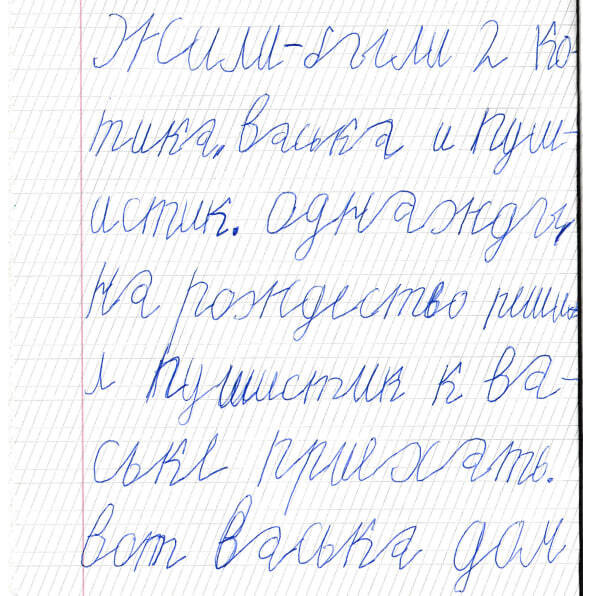 Жили-были 2 ко-
тика, Васька и Пуш-
истик. однажды
на рождество реши-
л Пушистик к Ва-
ське приехать.
вот Васька дом